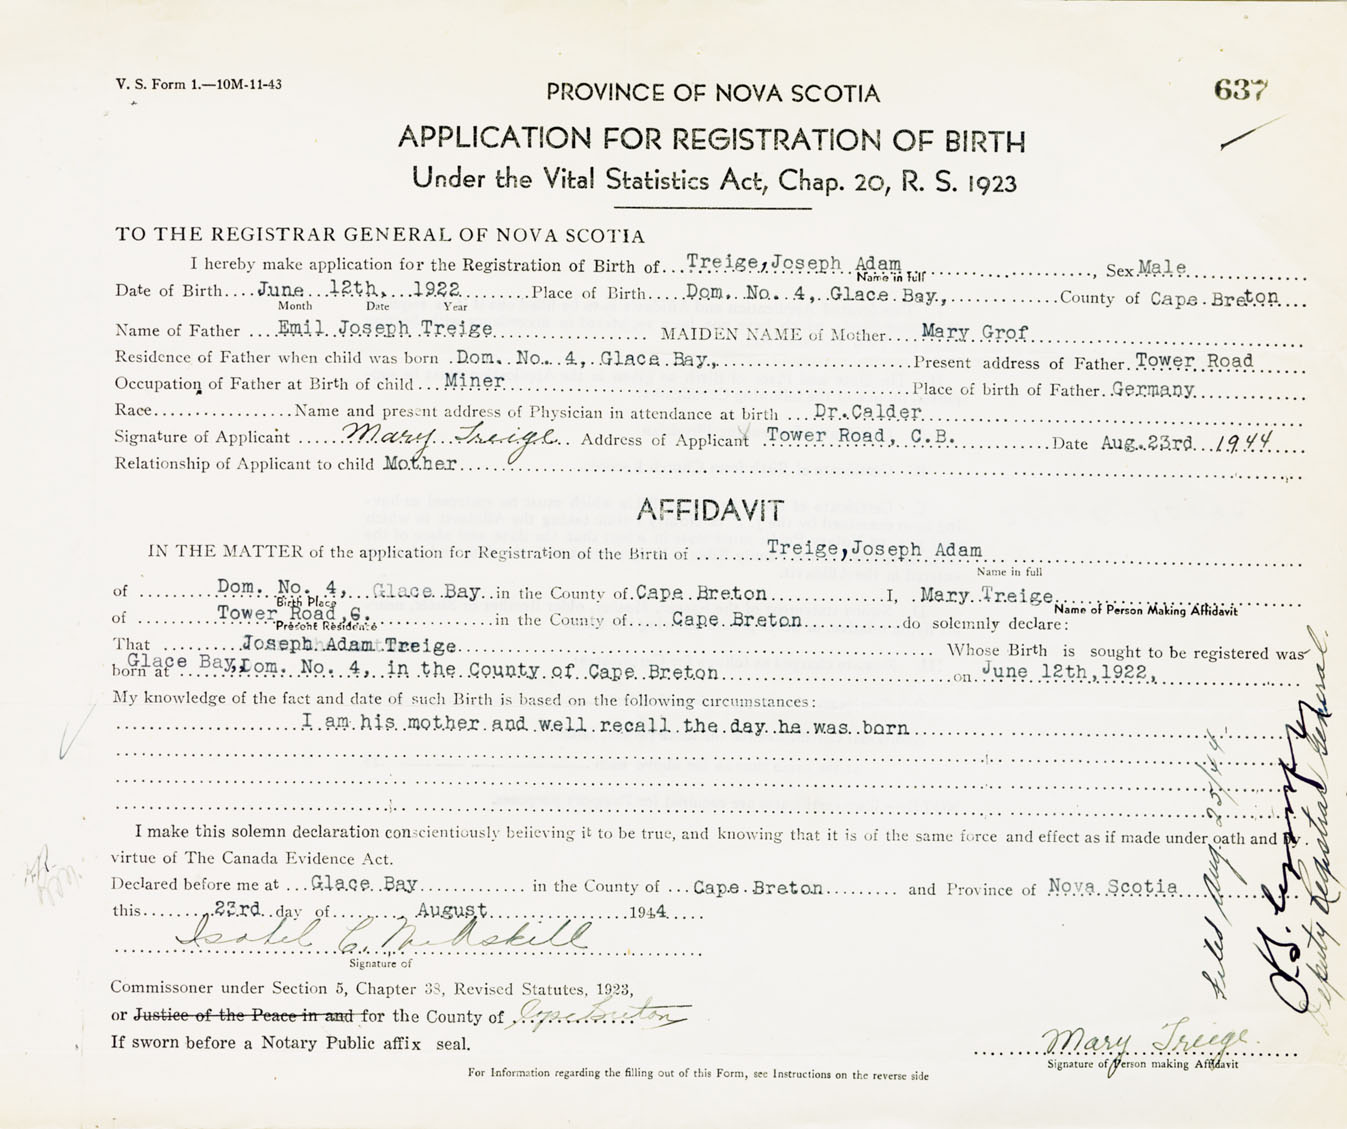 V. S. Form 1.—10M-11-43
PROVINCE OF NOVA SCOTIA
637
APPLICATION FOR REGISTRATION OF BIRTH
Under the Vital Statistics Act, Chap. 20, R. S. 1923
TO THE REGISTRAR GENERAL OF NOVA SCOTIA
I hereby make application for the Registration of Birth of...Treige, Joseph Adam......, Sex Male
Name in full
Date of Birth....June 12th, 1922........Place of Birth....Dom. No. 4, Glace Bay,............County of Cape Breton....
Month Date Year
Name of Father ....Emil Joseph Treige............MAIDEN NAME of Mother....Mary Grof
Residence of Father when child was born .Dom. No. 4, Glace Bay,............Present address of Father.Tower Road
Occupation of Father at Birth of child ...Miner............Place of birth of Father.Germany
Race................Name and present address of Physician in attendance at birth ...Dr.Calder
Signature of Applicant .....Mary Treige.. Address of Applicant .Tower Road, C.B............Date Aug.23rd 1944
Relationship of Applicant to child Mother
AFFIDAVIT
IN THE MATTER of the application for Registration of the Birth of ........Treige, Joseph Adam
Name in full
of ........Dom. No. 4, Glace Bay..in the County of.Cape Breton............I, Mary Treige
Birth Place Name of Person Making Affidavit
of ........Tower Road, G.............in the County of.....Cape Breton............do solemnly declare:
Present Residence
That ..........Joseph Adam Treige............Whose Birth is sought to be registered was
born at Glace Bay, Dom. No. 4, in the County of Cape Breton............on June 12th, 1922,
My knowledge of the fact and date of such Birth is based on the following circumstances:
I am his mother and well recall the day he was born
I make this solemn declaration conscientiously believing it to be true, and knowing that it is of the same force and effect as if made under oath and by
virtue of The Canada Evidence Act.
Declared before me at ...Glace Bay............in the County of ...Cape Breton......... and Province of Nova Scotia
this........23rd day of........August............1944.....
Isobel C. McAskill
Signature of
Commissoner under Section 5, Chapter 38, Revised Statutes, 1923,
or Justice of the Peace in and for the County of Cape Breton
If sworn before a Notary Public affix seal.
Mary Treige
Signature of Person making Affidavit
For Information regarding the filling out of this Form, see Instructions on the reverse side
Filed Aug. 25/44
Deputy Registrar General.